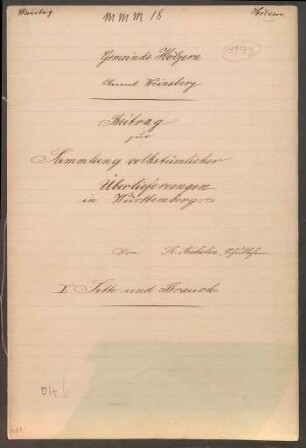 Weinsberg
Hölzern
M M M 18
Gemeinde Hölzern
Oberamt Weinsberg
Beitrag
zur
Sammlung volkstümlicher
Überlieferungen
in Württemberg.
Von
I. Sitte und Brauch.